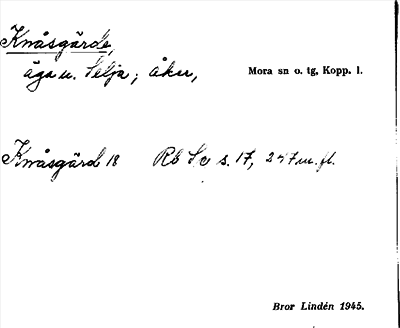 Knåsgärde,
äga u. Selja; åker,
Mora sn o. tg, Kopp. l.
Knåsgärd 18 Rb s. 17, m. fl.
Bror Lindén 1945.